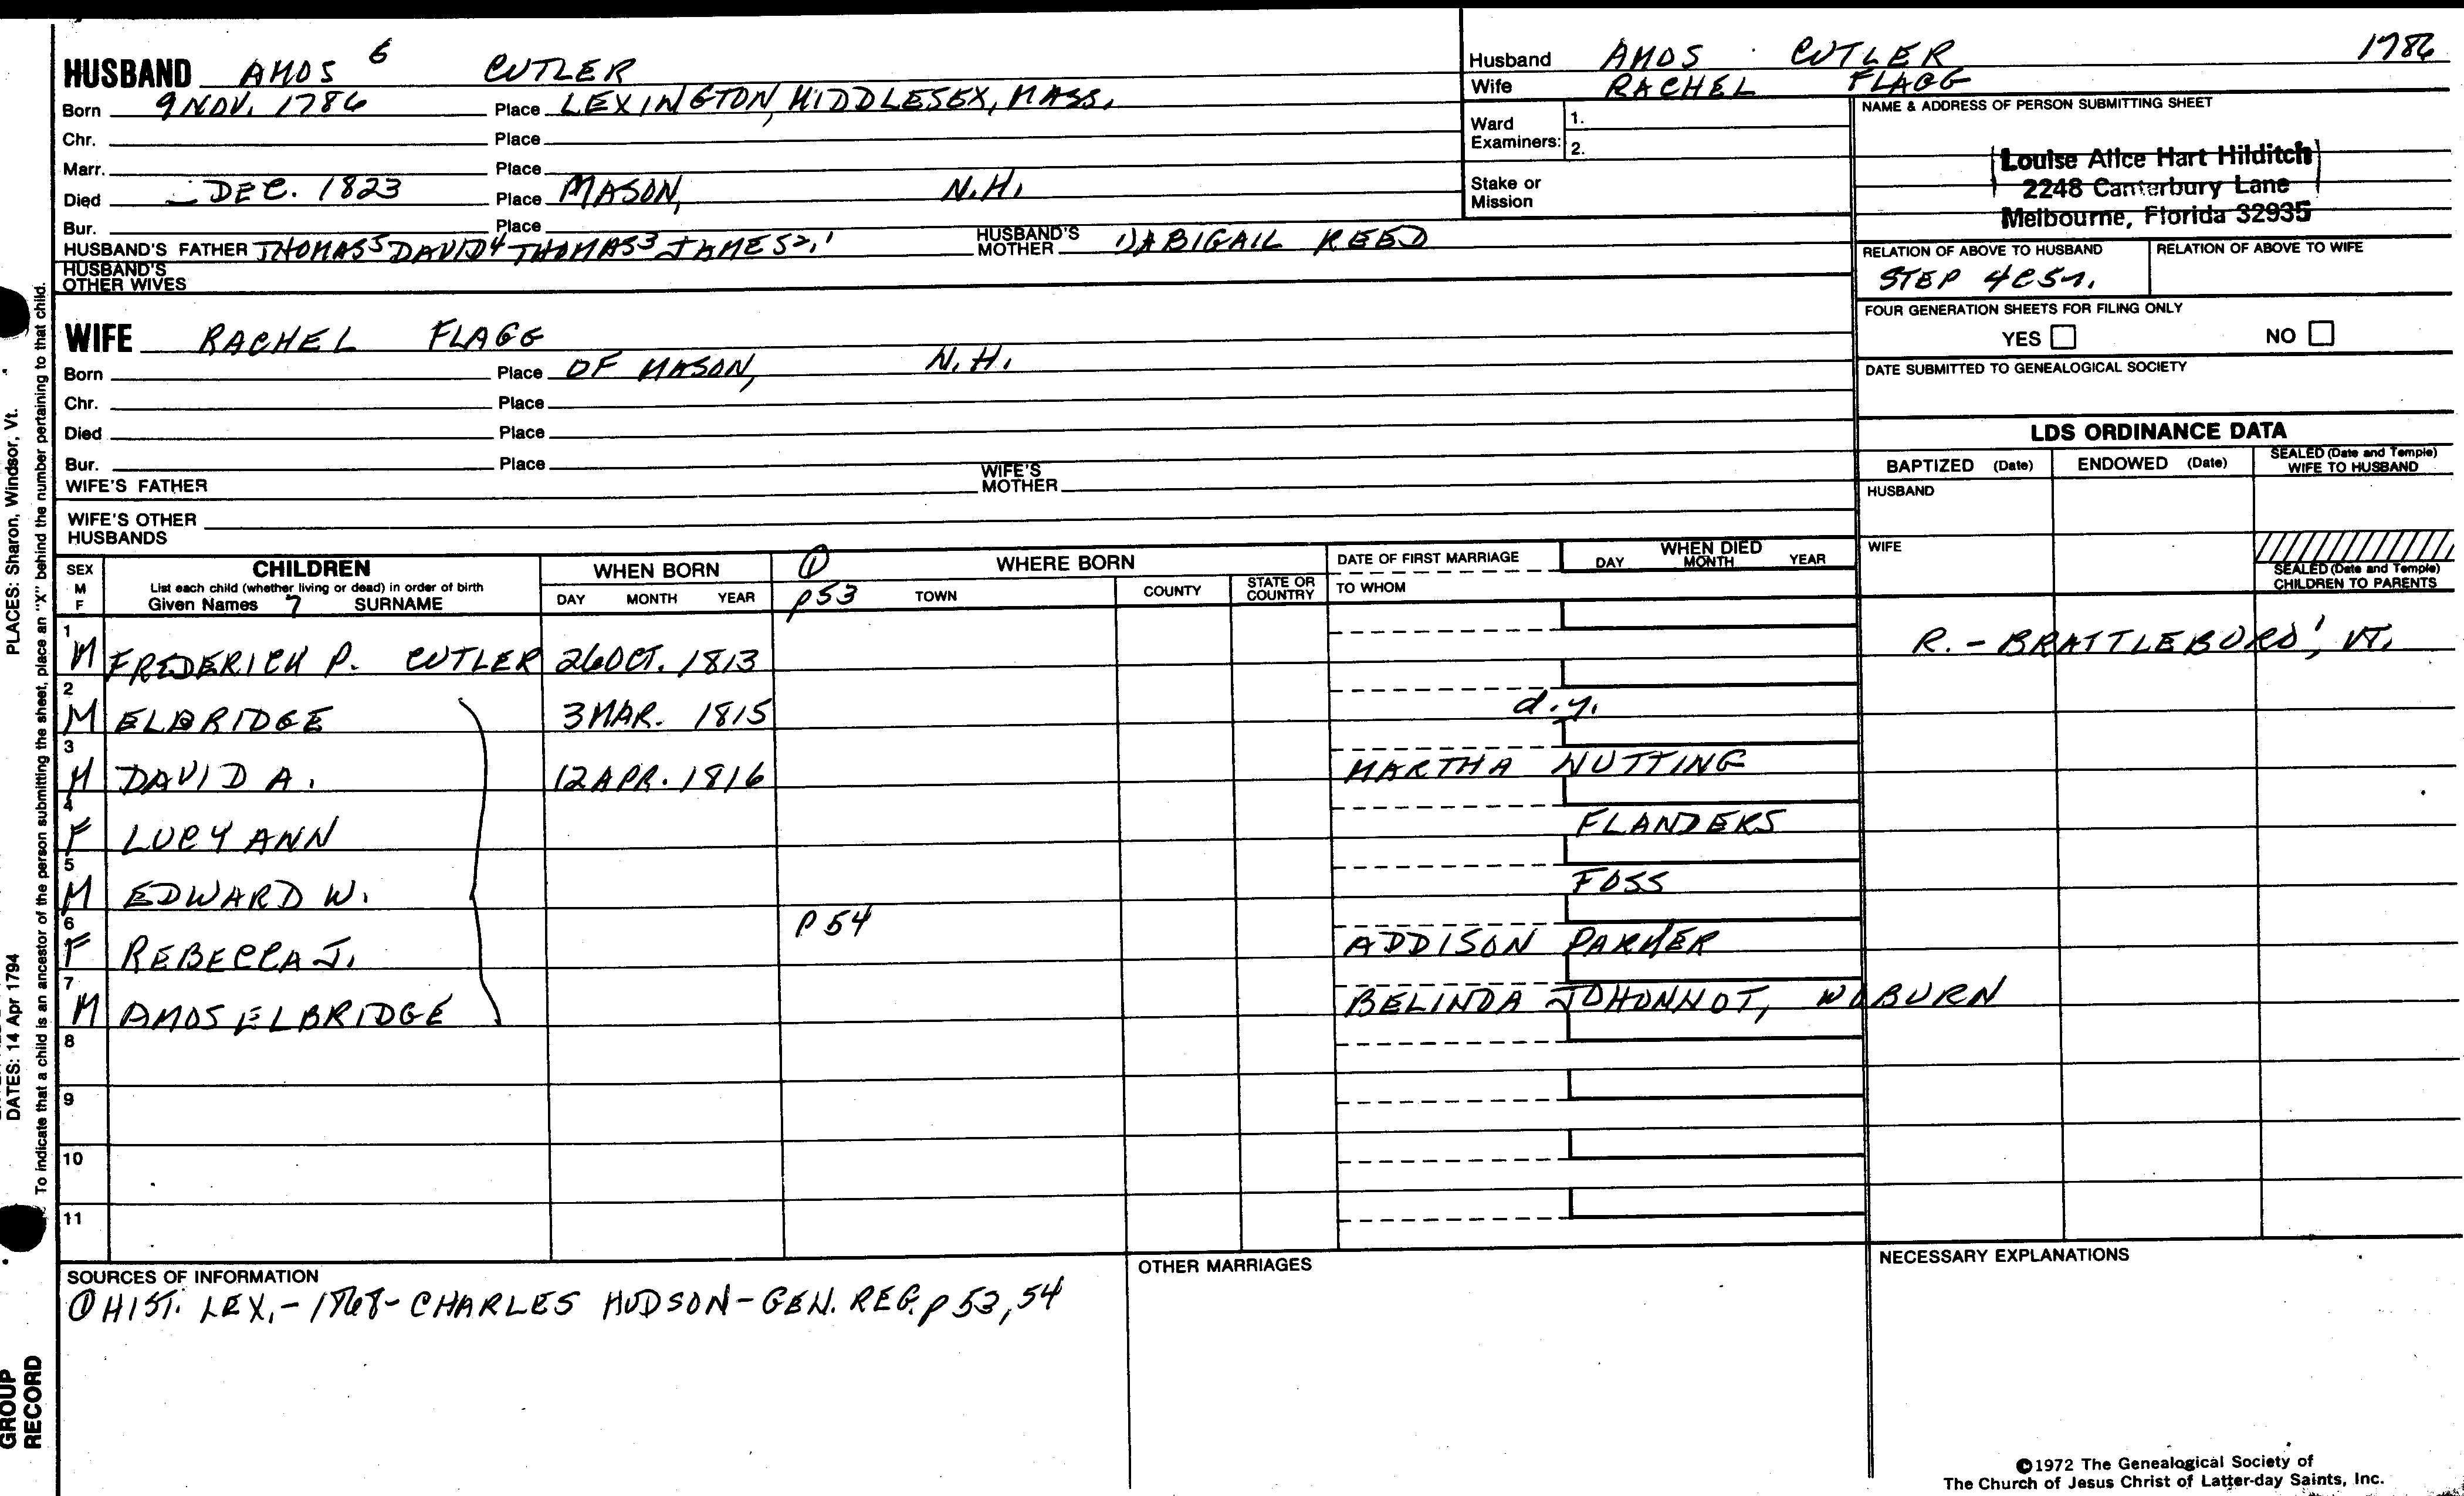 HUSBAND AMOS 6 CUTLER
Born 9 NOV. 1786 Place LEXINGTON, MIDDLESEX, MASS.
Chr. Place
Marr. Place
Died - DEC. 1823 Place MASON, N.H.
Bur. Place
HUSBAND'S FATHER THOMAS5 DAVID4 THOMAS3 JAMES2,1 HUSBAND'S MOTHER 1) ABIGAIL REED
HUSBAND'S OTHER WIVES
WIFE RACHEL FLAGG
Born Place OF MASON, N.H.
Chr. Place
Died Place
Bur. Place
WIFE'S FATHER WIFE'S MOTHER
WIFE'S OTHER HUSBANDS
Husband AMOS CUTLER 1786
Wife RACHEL FLAGG
Ward Examiners: 1.
2.
Stake or Mission
NAME & ADDRESS OF PERSON SUBMITTING SHEET
Louise Alice Hart Hilditch
2248 Canterbury Lane
Melbourne, Florida 32935
RELATION OF ABOVE TO HUSBAND RELATION OF ABOVE TO WIFE
STEP 4C5r.
FOUR GENERATION SHEETS FOR FILING ONLY
YES NO
DATE SUBMITTED TO GENEALOGICAL SOCIETY
LDS ORDINANCE DATA
BAPTIZED (Date) ENDOWED (Date) SEALED (Date and Temple) WIFE TO HUSBAND
HUSBAND
WIFE
SEALED (Date and Temple) CHILDREN TO PARENTS
SEX M F CHILDREN WHEN BORN ① WHERE BORN DATE OF FIRST MARRIAGE WHEN DIED
List each child (whether living or dead) in order of birth
Given Names 7 SURNAME DAY MONTH YEAR p53 TOWN COUNTY STATE OR COUNTRY TO WHOM DAY MONTH YEAR
1 M FREDERICK P. CUTLER 26 OCT. 1813 R. - BRATTLEBORO', VT.
2 M ELBRIDGE 3 MAR. 1815 d.y.
3 M DAVID A. 12 APR. 1816 MARTHA NUTTING
4 F LUCY ANN FLANDERS
5 M EDWARD W. FOSS
6 F REBECCA J. p54 ADDISON PARKER
7 M AMOS ELBRIDGE BELINDA JOHONNOT, WOBURN
8
9
10
11
SOURCES OF INFORMATION
① HIST. LEX. - 1868 - CHARLES HUDSON - GEN. REG. p 53, 54
OTHER MARRIAGES
NECESSARY EXPLANATIONS
©1972 The Genealogical Society of
The Church of Jesus Christ of Latter-day Saints, Inc.
PLACES: Sharon, Windsor, Vt.
DATES: 14 Apr 1794
To indicate that a child is an ancestor of the person submitting the sheet, place an "X" behind the number pertaining to that child.
GROUP
RECORD